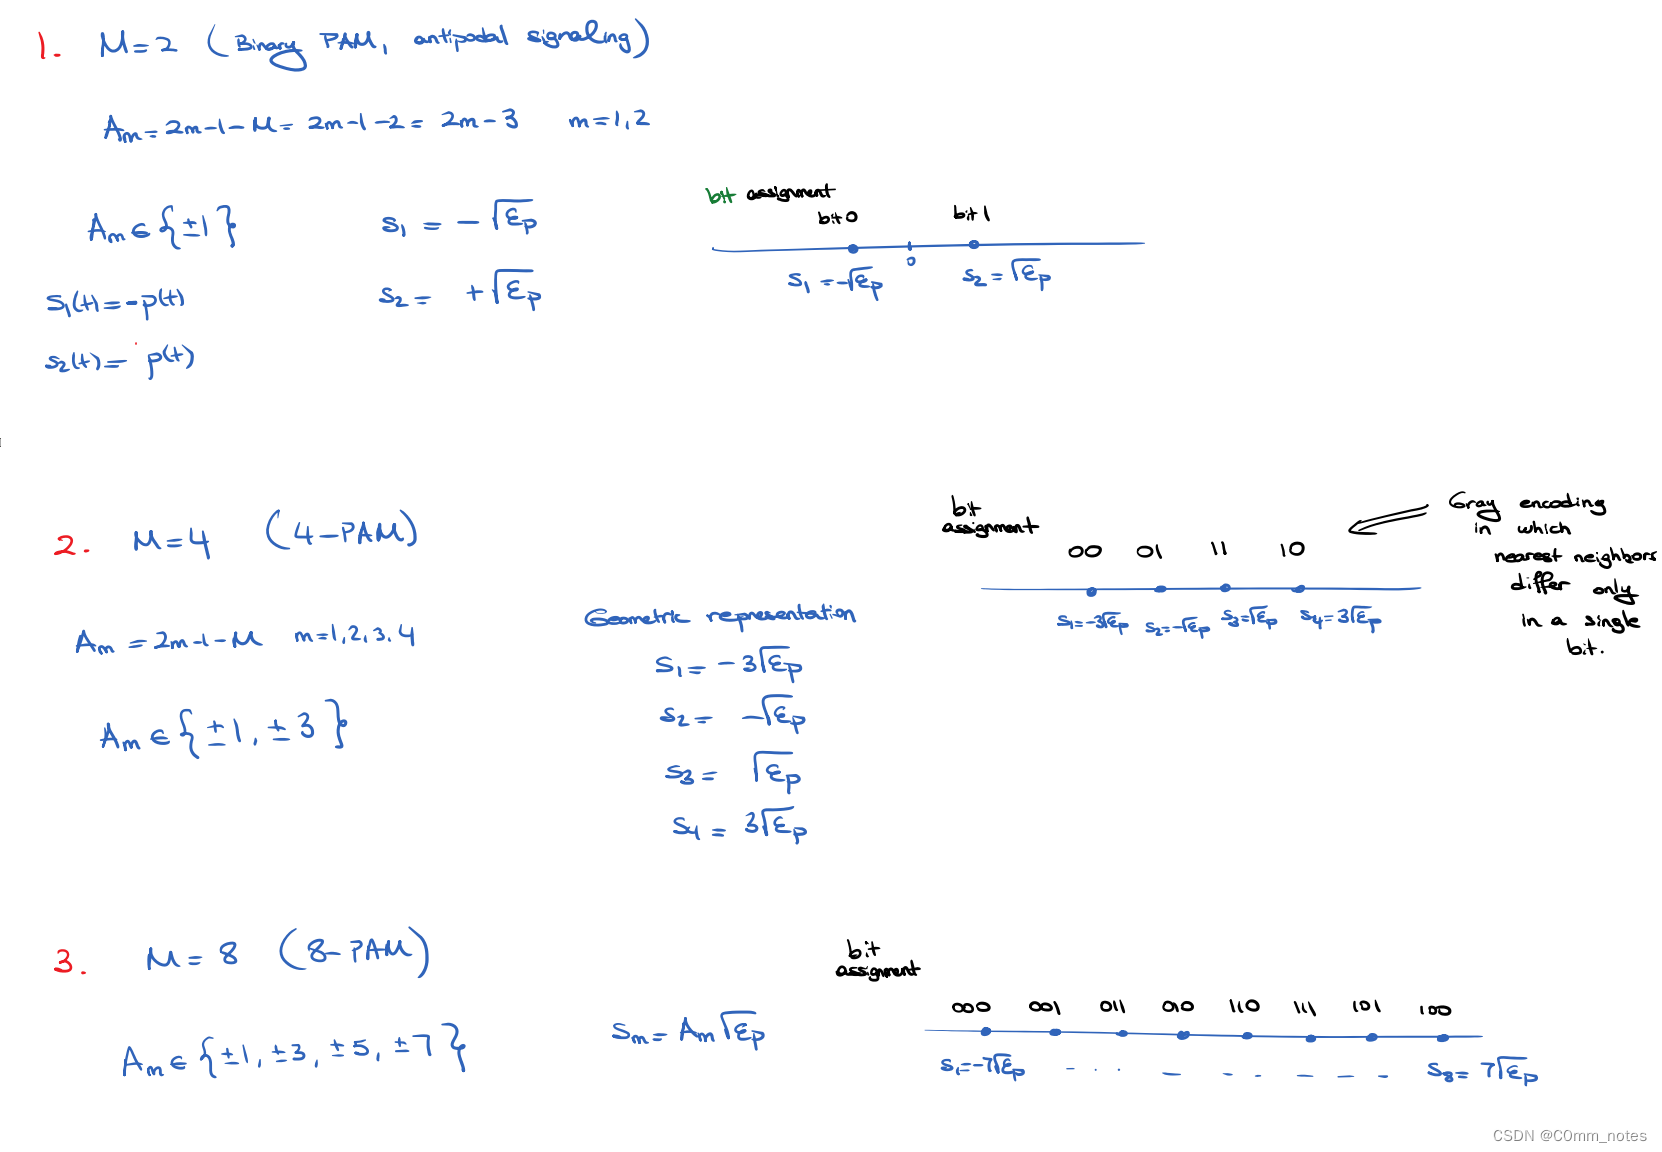 1. M=2 (Binary PAM, antipodal signaling)
Am = 2m-1-M = 2m-1-2 = 2m-3 m=1,2
Am ∈ {±1}
s1 = -√Ep
s2 = +√Ep
s1(t) = -p(t)
s2(t) = p(t)
bit assignment
bit 0 bit 1
0
s1 = -√Ep s2 = √Ep
2. M=4 (4-PAM)
Am = 2m-1-M m=1,2,3,4
Am ∈ {±1, ±3}
Geometric representation
s1 = -3√Ep
s2 = -√Ep
s3 = √Ep
s4 = 3√Ep
bit
assignment
00 01 11 10
s1=-3√Ep s2=-√Ep s3=√Ep s4=3√Ep
Gray encoding
in which
nearest neighbors
differ only
in a single
bit.
3. M=8 (8-PAM)
Am ∈ {±1, ±3, ±5, ±7}
sm = Am√Ep
bit
assignment
000 001 011 010 110 111 101 100
s1=-7√Ep - . . . - - - - - - - s8= 7√Ep
CSDN @C0mm_notes